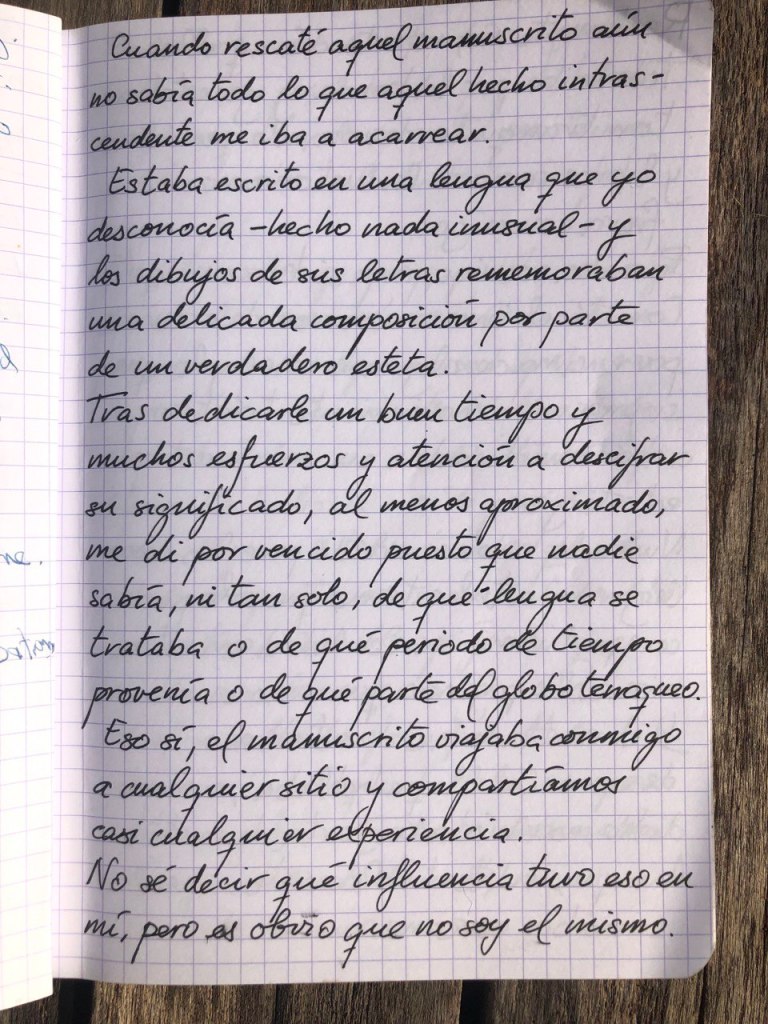 Cuando rescaté aquel manuscrito aún
no sabía todo lo que aquel hecho intras-
cendente me iba a acarrear.
Estaba escrito en una lengua que yo
desconocía -hecho nada inusual- y
los dibujos de sus letras rememoraban
una delicada composición por parte
de un verdadero esteta.
Tras dedicarle un buen tiempo y
muchos esfuerzos y atención a descifrar
su significado, al menos aproximado,
me di por vencido puesto que nadie
sabía, ni tan solo, de qué lengua se
trataba o de qué periodo de tiempo
provenía o de qué parte del globo terraqueo.
Eso sí, el manuscrito viajaba conmigo
a cualquier sitio y compartíamos
casi cualquier experiencia.
No sé decir qué influencia tuvo eso en
mí, pero es obvio que no soy el mismo.